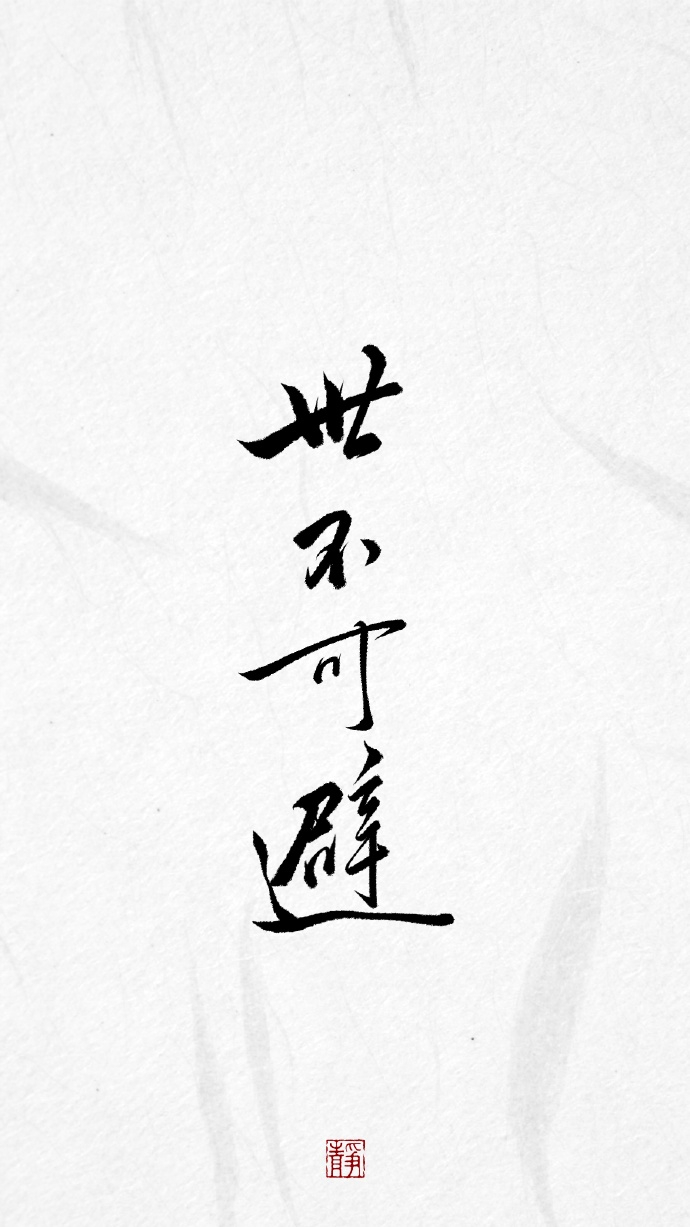 世不可避
靜